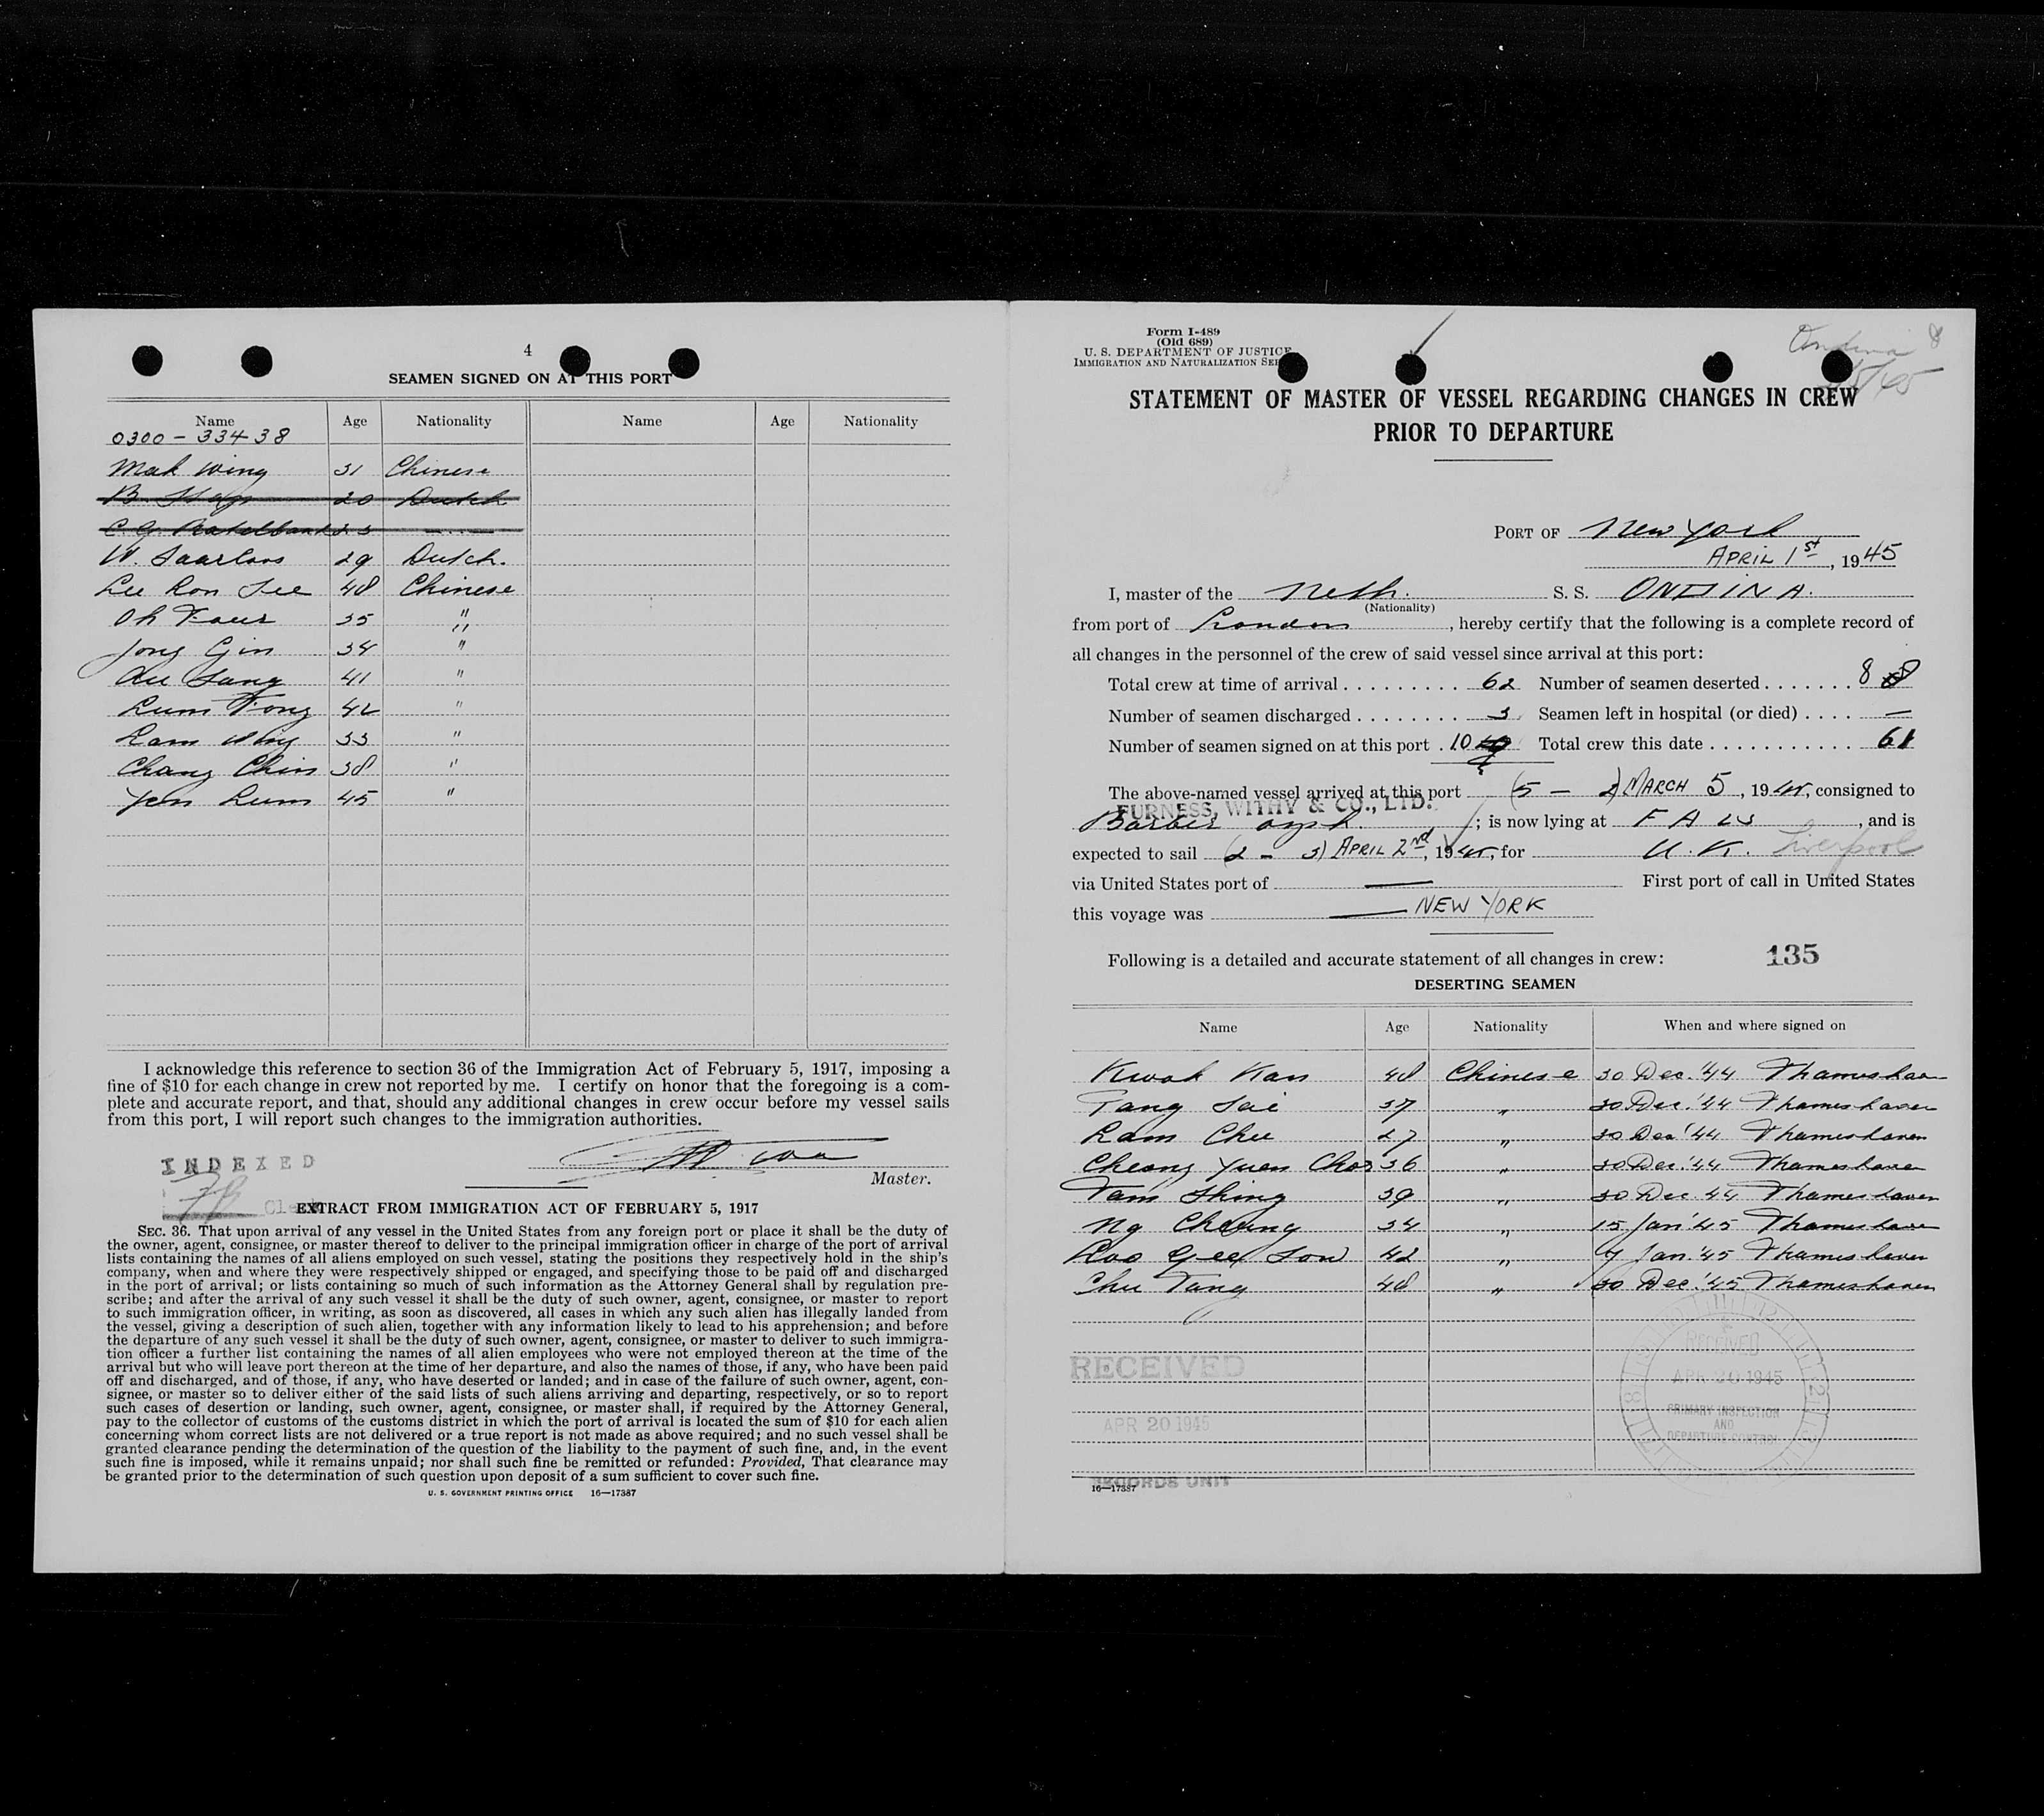 4
SEAMEN SIGNED ON AT THIS PORT
Name Age Nationality Name Age Nationality
0300-33438
Mak Wing 31 Chinese
B. 20 Dutch
C. G. 23
W. Saarloos 29 Dutch.
Lee Kon See 48 Chinese
Oh Four 35 "
Jong Gin 34 "
Au Sang 41 "
Lum Fong 42 "
Lam 33 "
Chang Chin 38 "
Yen Lum 45 "
I acknowledge this reference to section 36 of the Immigration Act of February 5, 1917, imposing a
fine of $10 for each change in crew not reported by me. I certify on honor that the foregoing is a com-
plete and accurate report, and that, should any additional changes in crew occur before my vessel sails
from this port, I will report such changes to the immigration authorities.
INDEXED
Master.
Clerk
EXTRACT FROM IMMIGRATION ACT OF FEBRUARY 5, 1917
SEC. 36. That upon arrival of any vessel in the United States from any foreign port or place it shall be the duty of
the owner, agent, consignee, or master thereof to deliver to the principal immigration officer in charge of the port of arrival
lists containing the names of all aliens employed on such vessel, stating the positions they respectively hold in the ship's
company, when and where they were respectively shipped or engaged, and specifying those to be paid off and discharged
in the port of arrival; or lists containing so much of such information as the Attorney General shall by regulation pre-
scribe; and after the arrival of any such vessel it shall be the duty of such owner, agent, consignee, or master to report
to such immigration officer, in writing, as soon as discovered, all cases in which any such alien has illegally landed from
the vessel, giving a description of such alien, together with any information likely to lead to his apprehension; and before
the departure of any such vessel it shall be the duty of such owner, agent, consignee, or master to deliver to such immigra-
tion officer a further list containing the names of all alien employees who were not employed thereon at the time of the
arrival but who will leave port thereon at the time of her departure, and also the names of those, if any, who have been paid
off and discharged, and of those, if any, who have deserted or landed; and in case of the failure of such owner, agent, con-
signee, or master so to deliver either of the said lists of such aliens arriving and departing, respectively, or so to report
such cases of desertion or landing, such owner, agent, consignee, or master shall, if required by the Attorney General,
pay to the collector of customs of the customs district in which the port of arrival is located the sum of $10 for each alien
concerning whom correct lists are not delivered or a true report is not made as above required; and no such vessel shall be
granted clearance pending the determination of the question of the liability to the payment of such fine, and, in the event
such fine is imposed, while it remains unpaid; nor shall such fine be remitted or refunded: Provided, That clearance may
be granted prior to the determination of such question upon deposit of a sum sufficient to cover such fine.
U. S. GOVERNMENT PRINTING OFFICE 16—17387
Form I-489
(Old 689)
U. S. DEPARTMENT OF JUSTICE
IMMIGRATION AND NATURALIZATION SER
Ondina 8
STATEMENT OF MASTER OF VESSEL REGARDING CHANGES IN CREW
PRIOR TO DEPARTURE
PORT OF New York
APRIL 1st, 1945
I, master of the Neth. S. S. ONDINA.
(Nationality)
from port of London, hereby certify that the following is a complete record of
all changes in the personnel of the crew of said vessel since arrival at this port:
Total crew at time of arrival . . . . . . . . . 62 Number of seamen deserted . . . . . . . 8
Number of seamen discharged . . . . . . . . 3 Seamen left in hospital (or died) . . . . —
Number of seamen signed on at this port . 10 Total crew this date . . . . . . . . . . . . 61
The above-named vessel arrived at this port (5 — 3) MARCH 5, 1945, consigned to
FURNESS, WITHY & CO., LTD.
Barber ; is now lying at , and is
expected to sail (2 - 3) APRIL 2nd, 1945, for U. K. Liverpool
via United States port of — First port of call in United States
this voyage was — NEW YORK
Following is a detailed and accurate statement of all changes in crew: 135
DESERTING SEAMEN
Name Age Nationality When and where signed on
Kwok Kan 48 Chinese 30 Dec. '44 Thameshaven
Tang Sai 37 " 30 Dec. '44 Thameshaven
Lam Chu 27 " 30 Dec '44 Thameshaven
Cheong Yuen Choi 36 " 30 Dec. '44 Thameshaven
Tam Shing 39 " 30 Dec. 44 Thameshaven
Ng Cheung 34 " 15 Jan '45 Thameshaven
Loo Gee Son 42 " 9 Jan. '45 Thameshaven
Chu Tang 48 " 30 Dec. '45 Thameshaven
RECEIVED
APR 20 1945
RECORDS UNIT
RECEIVED
APR 20 1945
PRIMARY INSPECTION
AND
DEPARTURE CONTROL
16—17387